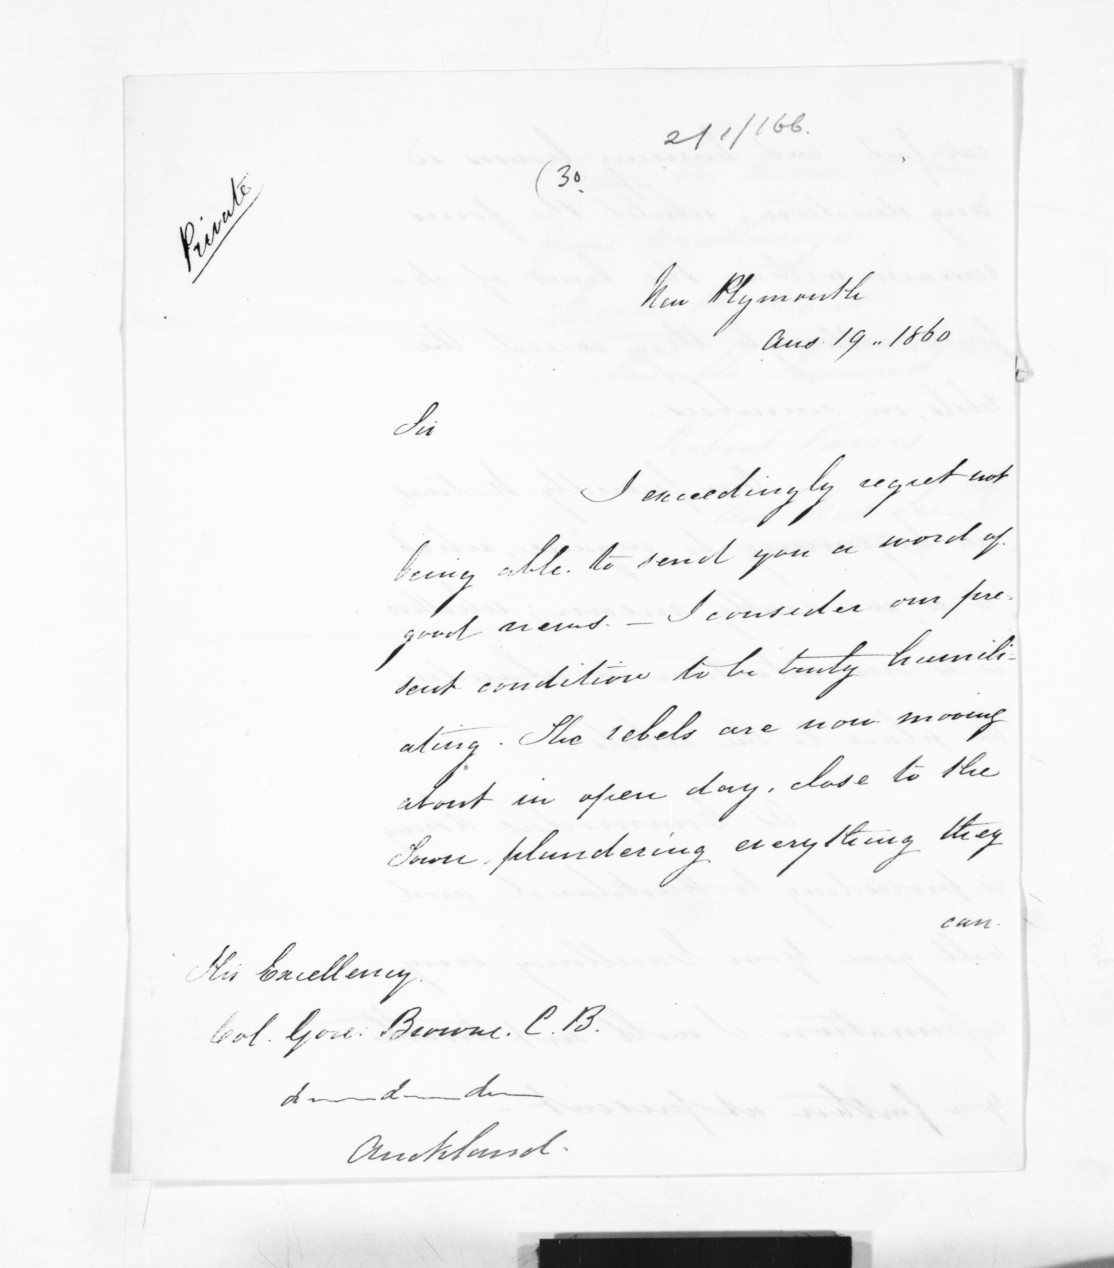 2/1/166.
(30.
Private
New Plymouth
Aug. 19.. 1860
Sir
I exceedingly regret not
being able to send you a word of
good news. — I consider our pre-
sent condition to be truly humili-
ating. The rebels are now moving
about in open day, close to the
Town, plundering everything they
can.
His Excellency.
Col. Gore Browne. C. B.
&—&—&—
Auckland.